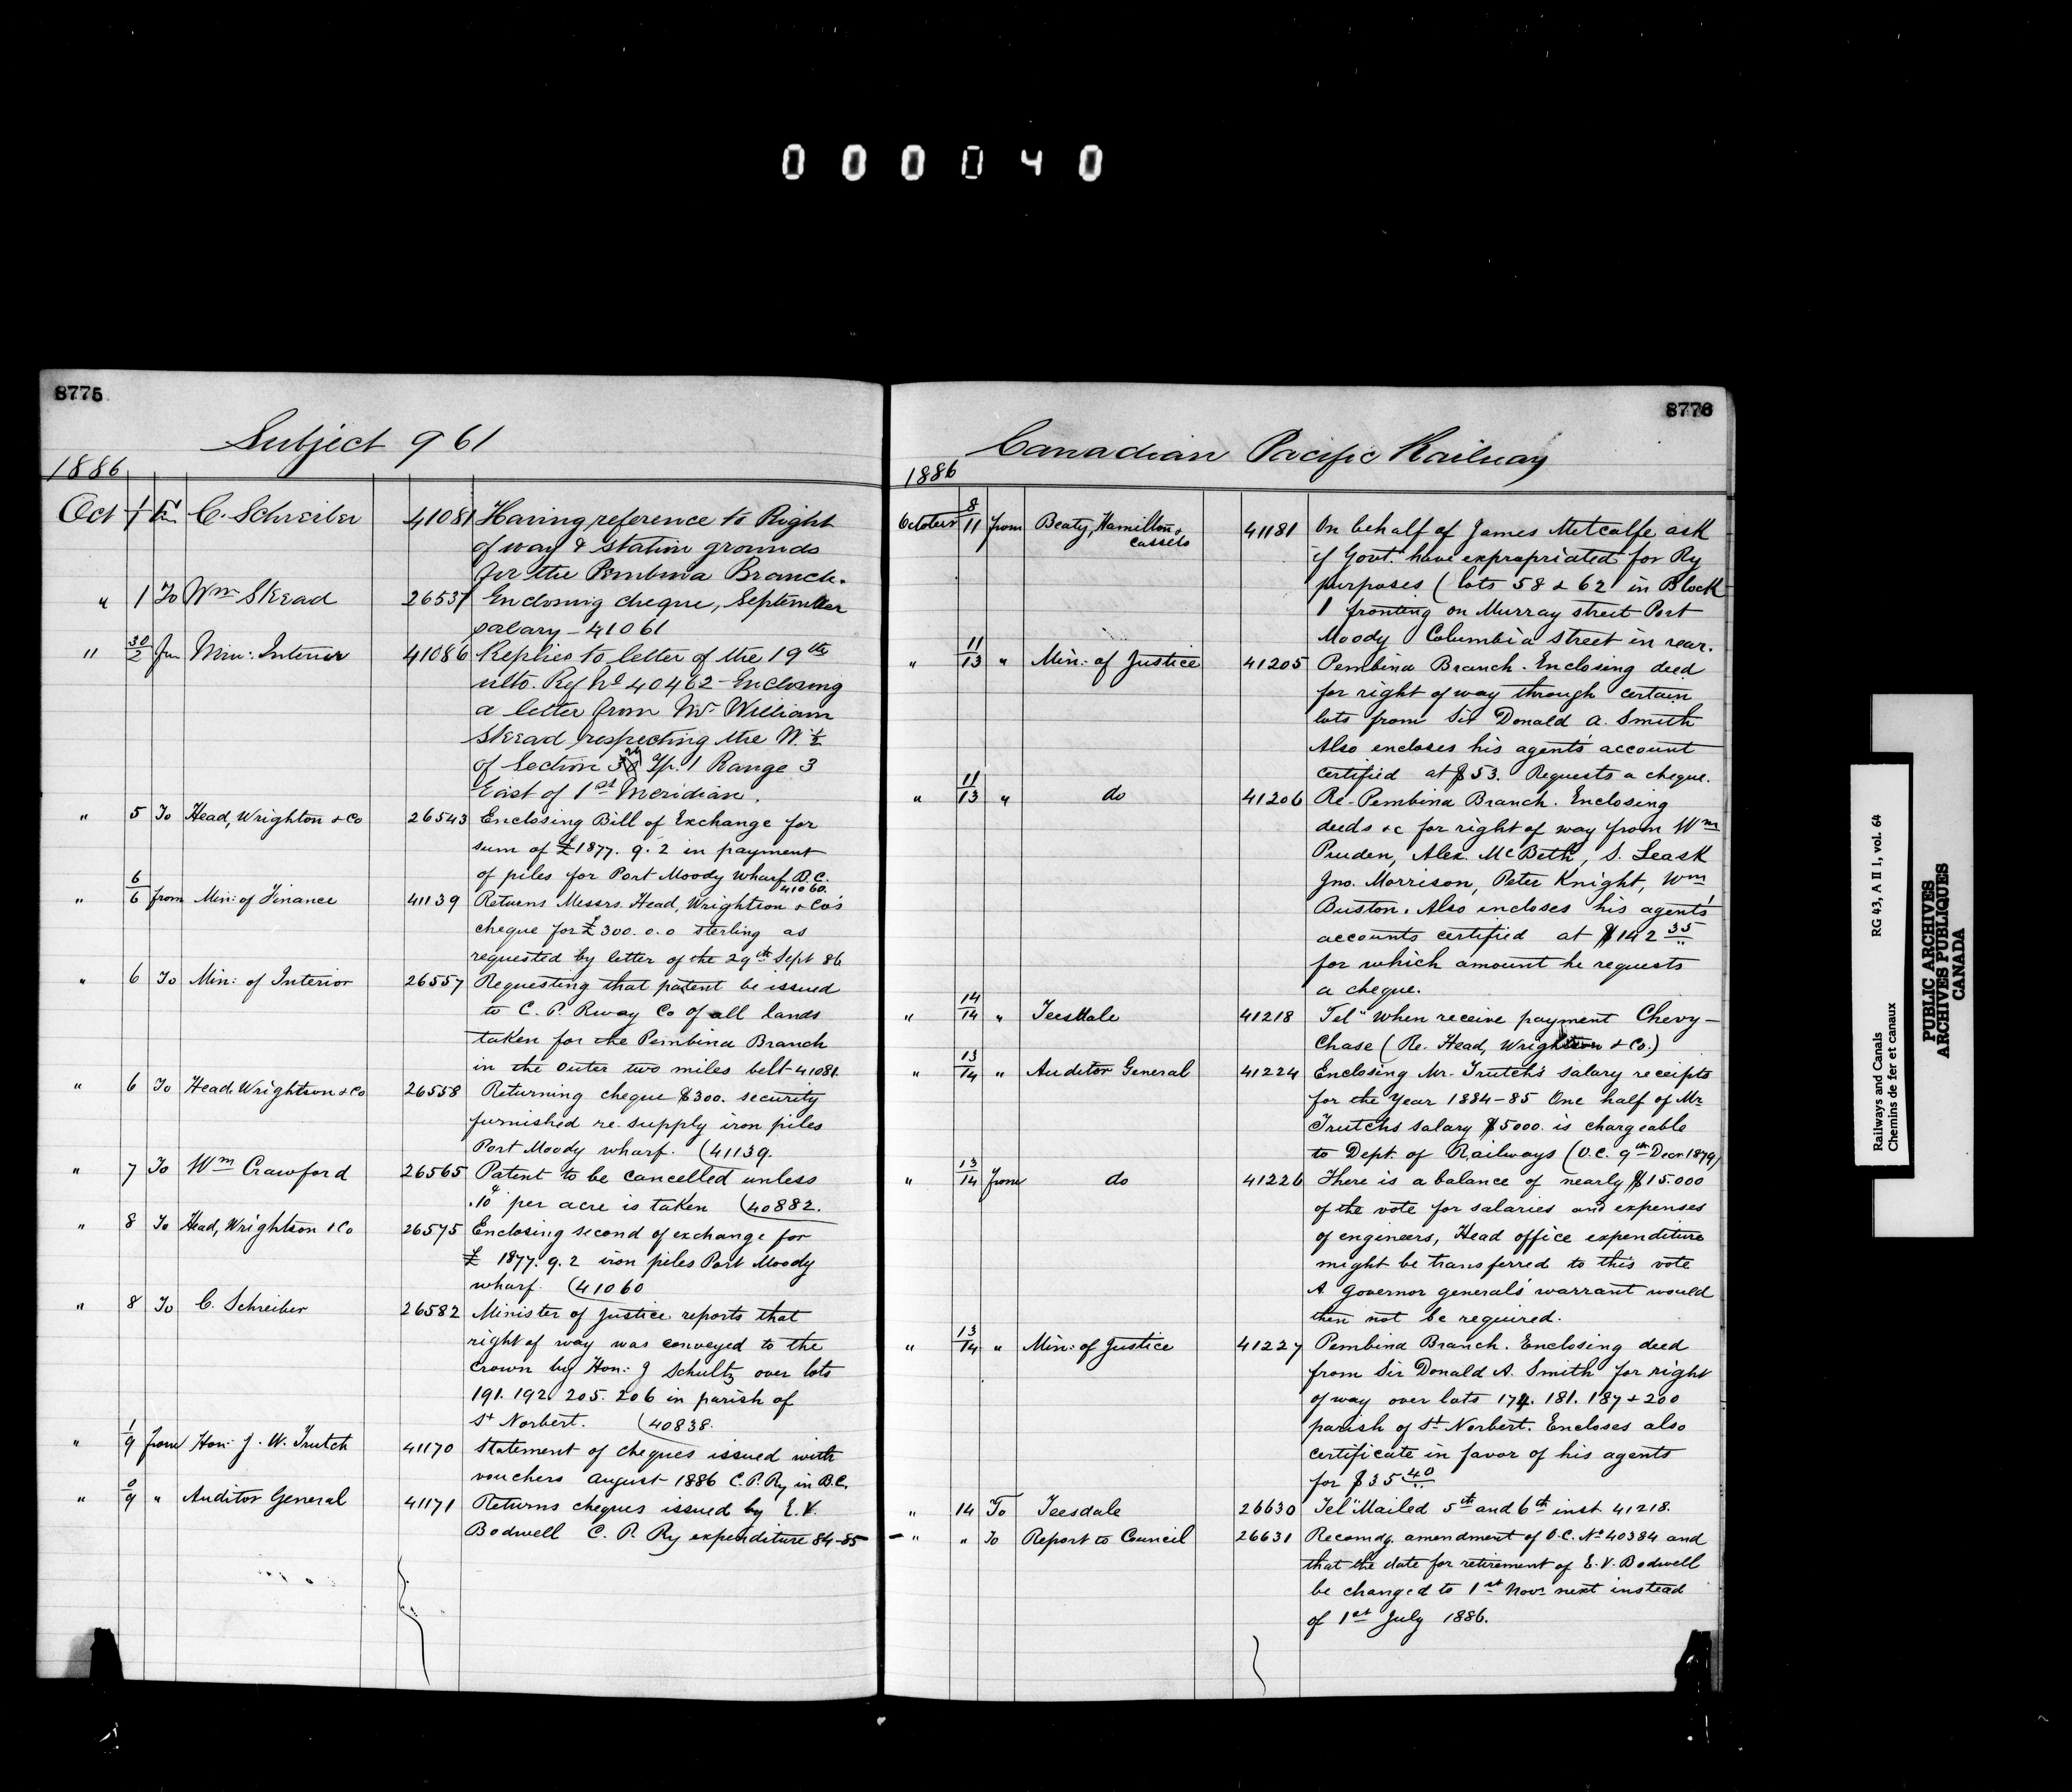 000040
8775
Subject 961
1886
Oct 1/1 Fm C. Schreiber 41081 Having reference to Right
of way & station grounds
for the Pembina Branch.
" 1 To Wm Skead 26537 Enclosing cheque, September
salary - 41061
" 30/2 fm Min: Interior 41086 Replies to letter of the 19th
ulto. Ref No 40462 - Enclosing
a letter from Mr William
Skead respecting the W. 1/2
of Section Tp. 1 Range 3
East of 1st Meridian.
" 5 To Head, Wrighton & Co 26543 Enclosing Bill of Exchange for
sum of £1877. 9. 2 in payment
of piles for Port Moody Wharf B.C.
41060.
" 6/6 from Min: of Finance 41139 Returns Messrs. Head, Wrightson & Co's
cheque for £300. 0. 0 sterling as
requested by letter of the 29th Sept 86
" 6 To Min: of Interior 26557 Requesting that patent be issued
to C. P. Rway Co of all lands
taken for the Pembina Branch
in the outer two miles belt - 41081.
" 6 To Head, Wrightson & Co 26558 Returning cheque $300. security
furnished re. supply iron piles
Port Moody wharf. (41139.
" 7 To Wm Crawford 26565 Patent to be cancelled unless
.10¢ per acre is taken (40882.
" 8 To Head, Wrightson & Co 26575 Enclosing second of exchange for
£ 1877. 9. 2 iron piles Port Moody
wharf. (41060
" 8 To C. Schreiber 26582 Minister of Justice reports that
right of way was conveyed to the
Crown by Hon: J Schultz over lots
191. 192. 205. 206 in parish of
St Norbert. (40838.
" 1/9 from Hon: J. W. Trutch 41170 Statement of cheques issued with
vouchers August 1886 C.P.Ry in B.C.
" /9 " Auditor General 41171 Returns cheques issued by E.V.
Bodwell C. P. Ry expenditure 84-85
8776
Canadian Pacific Railway
1886
October 8/11 from Beaty, Hamilton & 41181 On behalf of James Metcalfe ask
Cassels
if Govt. have expropriated for Ry
purposes (lots 58 & 62 in Block
1 fronting on Murray street Port
Moody Columbia street in rear.
" 11/13 " Min: of Justice 41205 Pembina Branch. Enclosing deed
for right of way through certain
lots from Sir Donald A. Smith
Also encloses his agents' account
certified at $53. Requests a cheque.
" 11/13 " do 41206 Re-Pembina Branch. Enclosing
deeds &c for right of way from Wm
Pruden, Alex. McBeth, S. Leask
Jno. Morrison, Peter Knight, Wm
Buston. Also incloses his agents'
accounts certified at $142 35/..
for which amount he requests
a cheque.
" 14/14 " Teesdale 41218 Tel" When receive payment Chevy-
Chase (Re. Head, Wrightson & Co.)
" 13/14 " Auditor General 41224 Enclosing Mr. Trutch's salary receipts
for the Year 1884-85 One half of Mr
Trutchs salary $5000. is chargeable
to Dept. of Railways (O.C. 9th Decr. 1879)
" 13/14 from do 41226 There is a balance of nearly $15.000
of the vote for salaries and expenses
of engineers, Head office expenditure
might be transferred to this vote
A Governor general's warrant would
then not be required.
" 13/14 " Min: of Justice 41227 Pembina Branch. Enclosing deed
from Sir Donald A. Smith for right
of way over lots 174. 181. 187 & 200
parish of St Norbert. Encloses also
certificate in favor of his agents
for $35 40/..
" 14 To Teesdale 26630 Tel" Mailed 5th and 6th inst. 41218.
" " To Report to Council 26631 Recomdg. amendment of O.C. No 40384 and
that the date for retirement of E. V. Bodwell
be changed to 1st Novr next instead
of 1st July 1886.
Railways and Canals RG 43, A II 1, vol. 64
Chemins de fer et canaux
PUBLIC ARCHIVES
ARCHIVES PUBLIQUES
CANADA